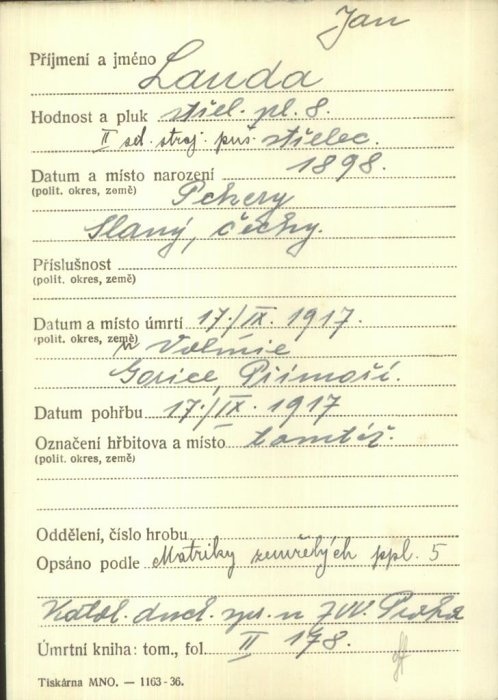 Jan
Příjmení a jméno Landa
Hodnost a pluk střel. pl. 8.
II sd. stroj. puš. střelec.
Datum a místo narození 1898.
(polit. okres, země) Pchery
Slaný, čechy.
Příslušnost
(polit. okres, země)
Datum a místo úmrtí 17./IX. 1917.
(polit. okres, země) u Volmie
Gorice, Přímoří.
Datum pohřbu 17./IX. 1917
Označení hřbitova a místo tamtéž.
(polit. okres, země)
Oddělení, číslo hrobu
Opsáno podle Matriky zemřelých ppl. 5
Katol. duch. spr. u ZVV. Praha
Úmrtní kniha: tom., fol. II 178.
Tiskárna MNO. — 1163-36.